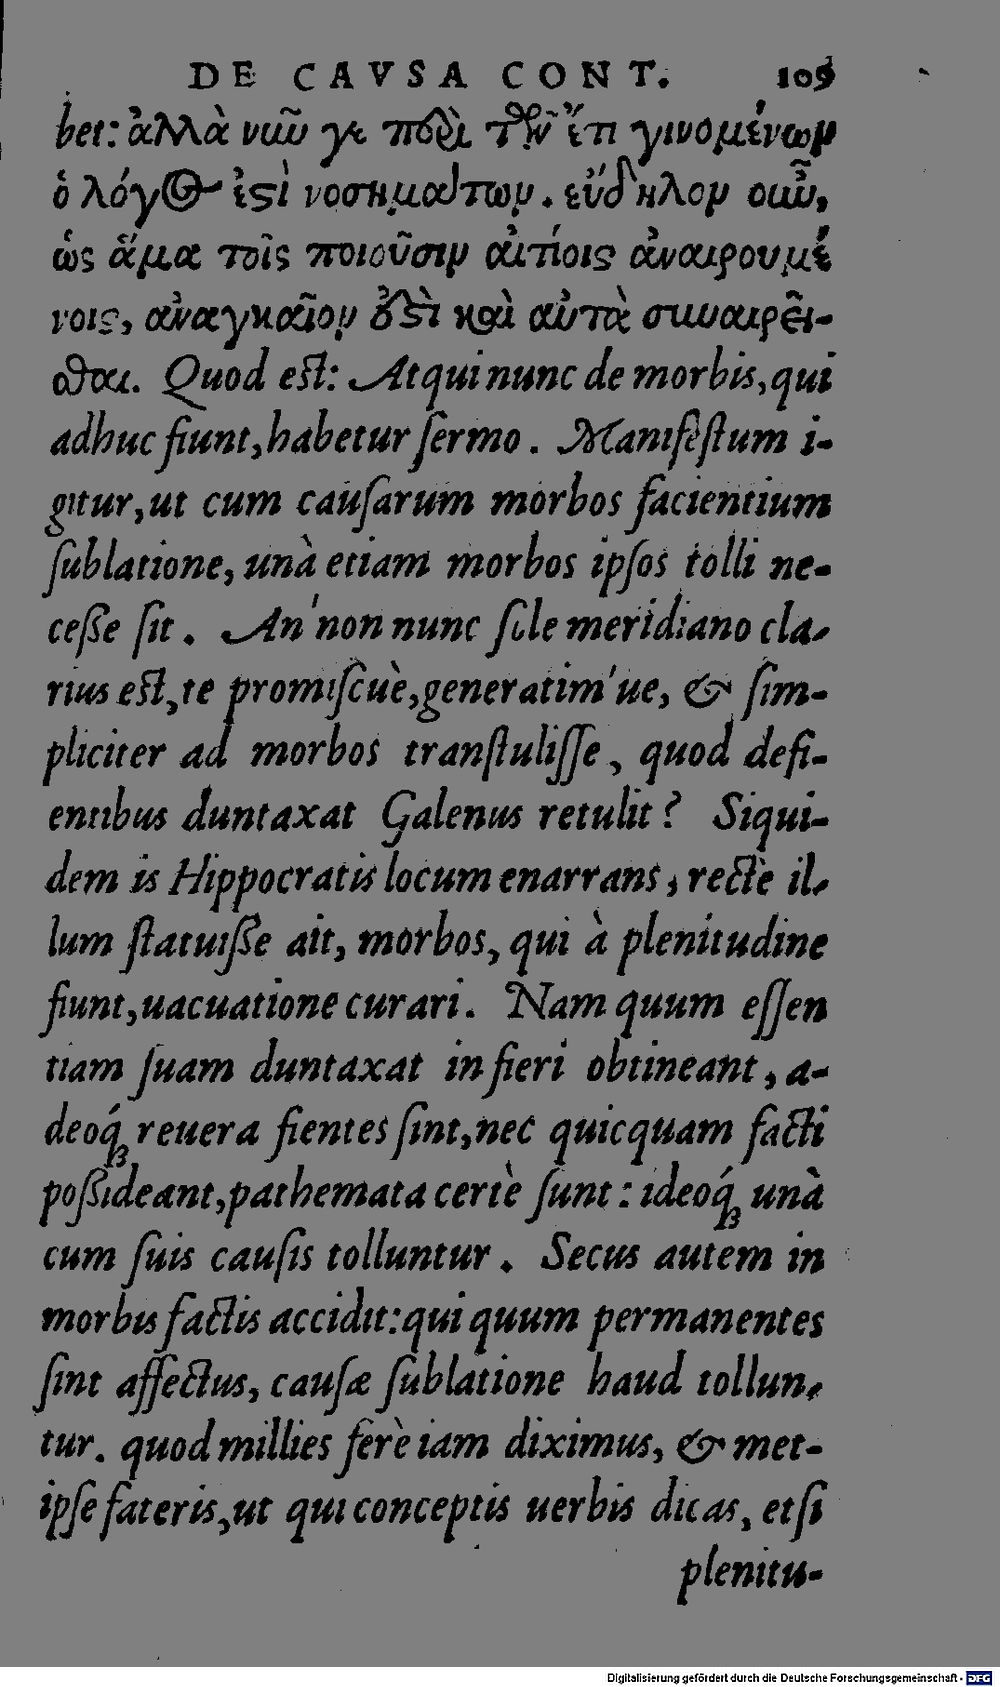 DE CAVSA CONT. 109
bet: ἀλλὰ νῦν γε περὶ τῶν ἔτι γινομένων
ὁ λόγος ἐστὶ νοσημάτων. εὔδηλον οὖν,
ὡς ἅμα τοῖς ποιοῦσιν αἰτίοις ἀναιρουμέ
νοις, ἀναγκαῖον ἐστὶ καὶ αὐτὰ συναιρεῖ-
σθαι. Quod est: Atqui nunc de morbis, qui
adhuc fiunt, habetur ſermo. Manifeſtum i-
gitur, ut cum cauſarum morbos facientium
ſublatione, unà etiam morbos ipſos tolli ne-
ceße ſit. An'non nunc ſole meridiano cla-
rius est, te promiſcuè, generatim'ue, & ſim-
pliciter ad morbos tranſtuliſſe, quod defi-
entibus duntaxat Galenus retulit? Siqui-
dem is Hippocratis locum enarrans, rectè il-
lum ſtatuiße ait, morbos, qui à plenitudine
fiunt, uacuatione curari. Nam quum eſſen
tiam ſuam duntaxat in fieri obtineant, a-
deoq́ꝫ reuera fientes ſint, nec quicquam facti
poßideant, pathemata certè ſunt: ideoq́ꝫ unà
cum ſuis cauſis tolluntur. Secus autem in
morbis factis accidit: qui quum permanentes
ſint affectus, cauſæ ſublatione haud tollun-
tur. quod millies ferè iam diximus, & met-
ipſe fateris, ut qui conceptis uerbis dicas, etſi
plenitu-
Digitalisierung gefördert durch die Deutsche Forschungsgemeinschaft - DFG